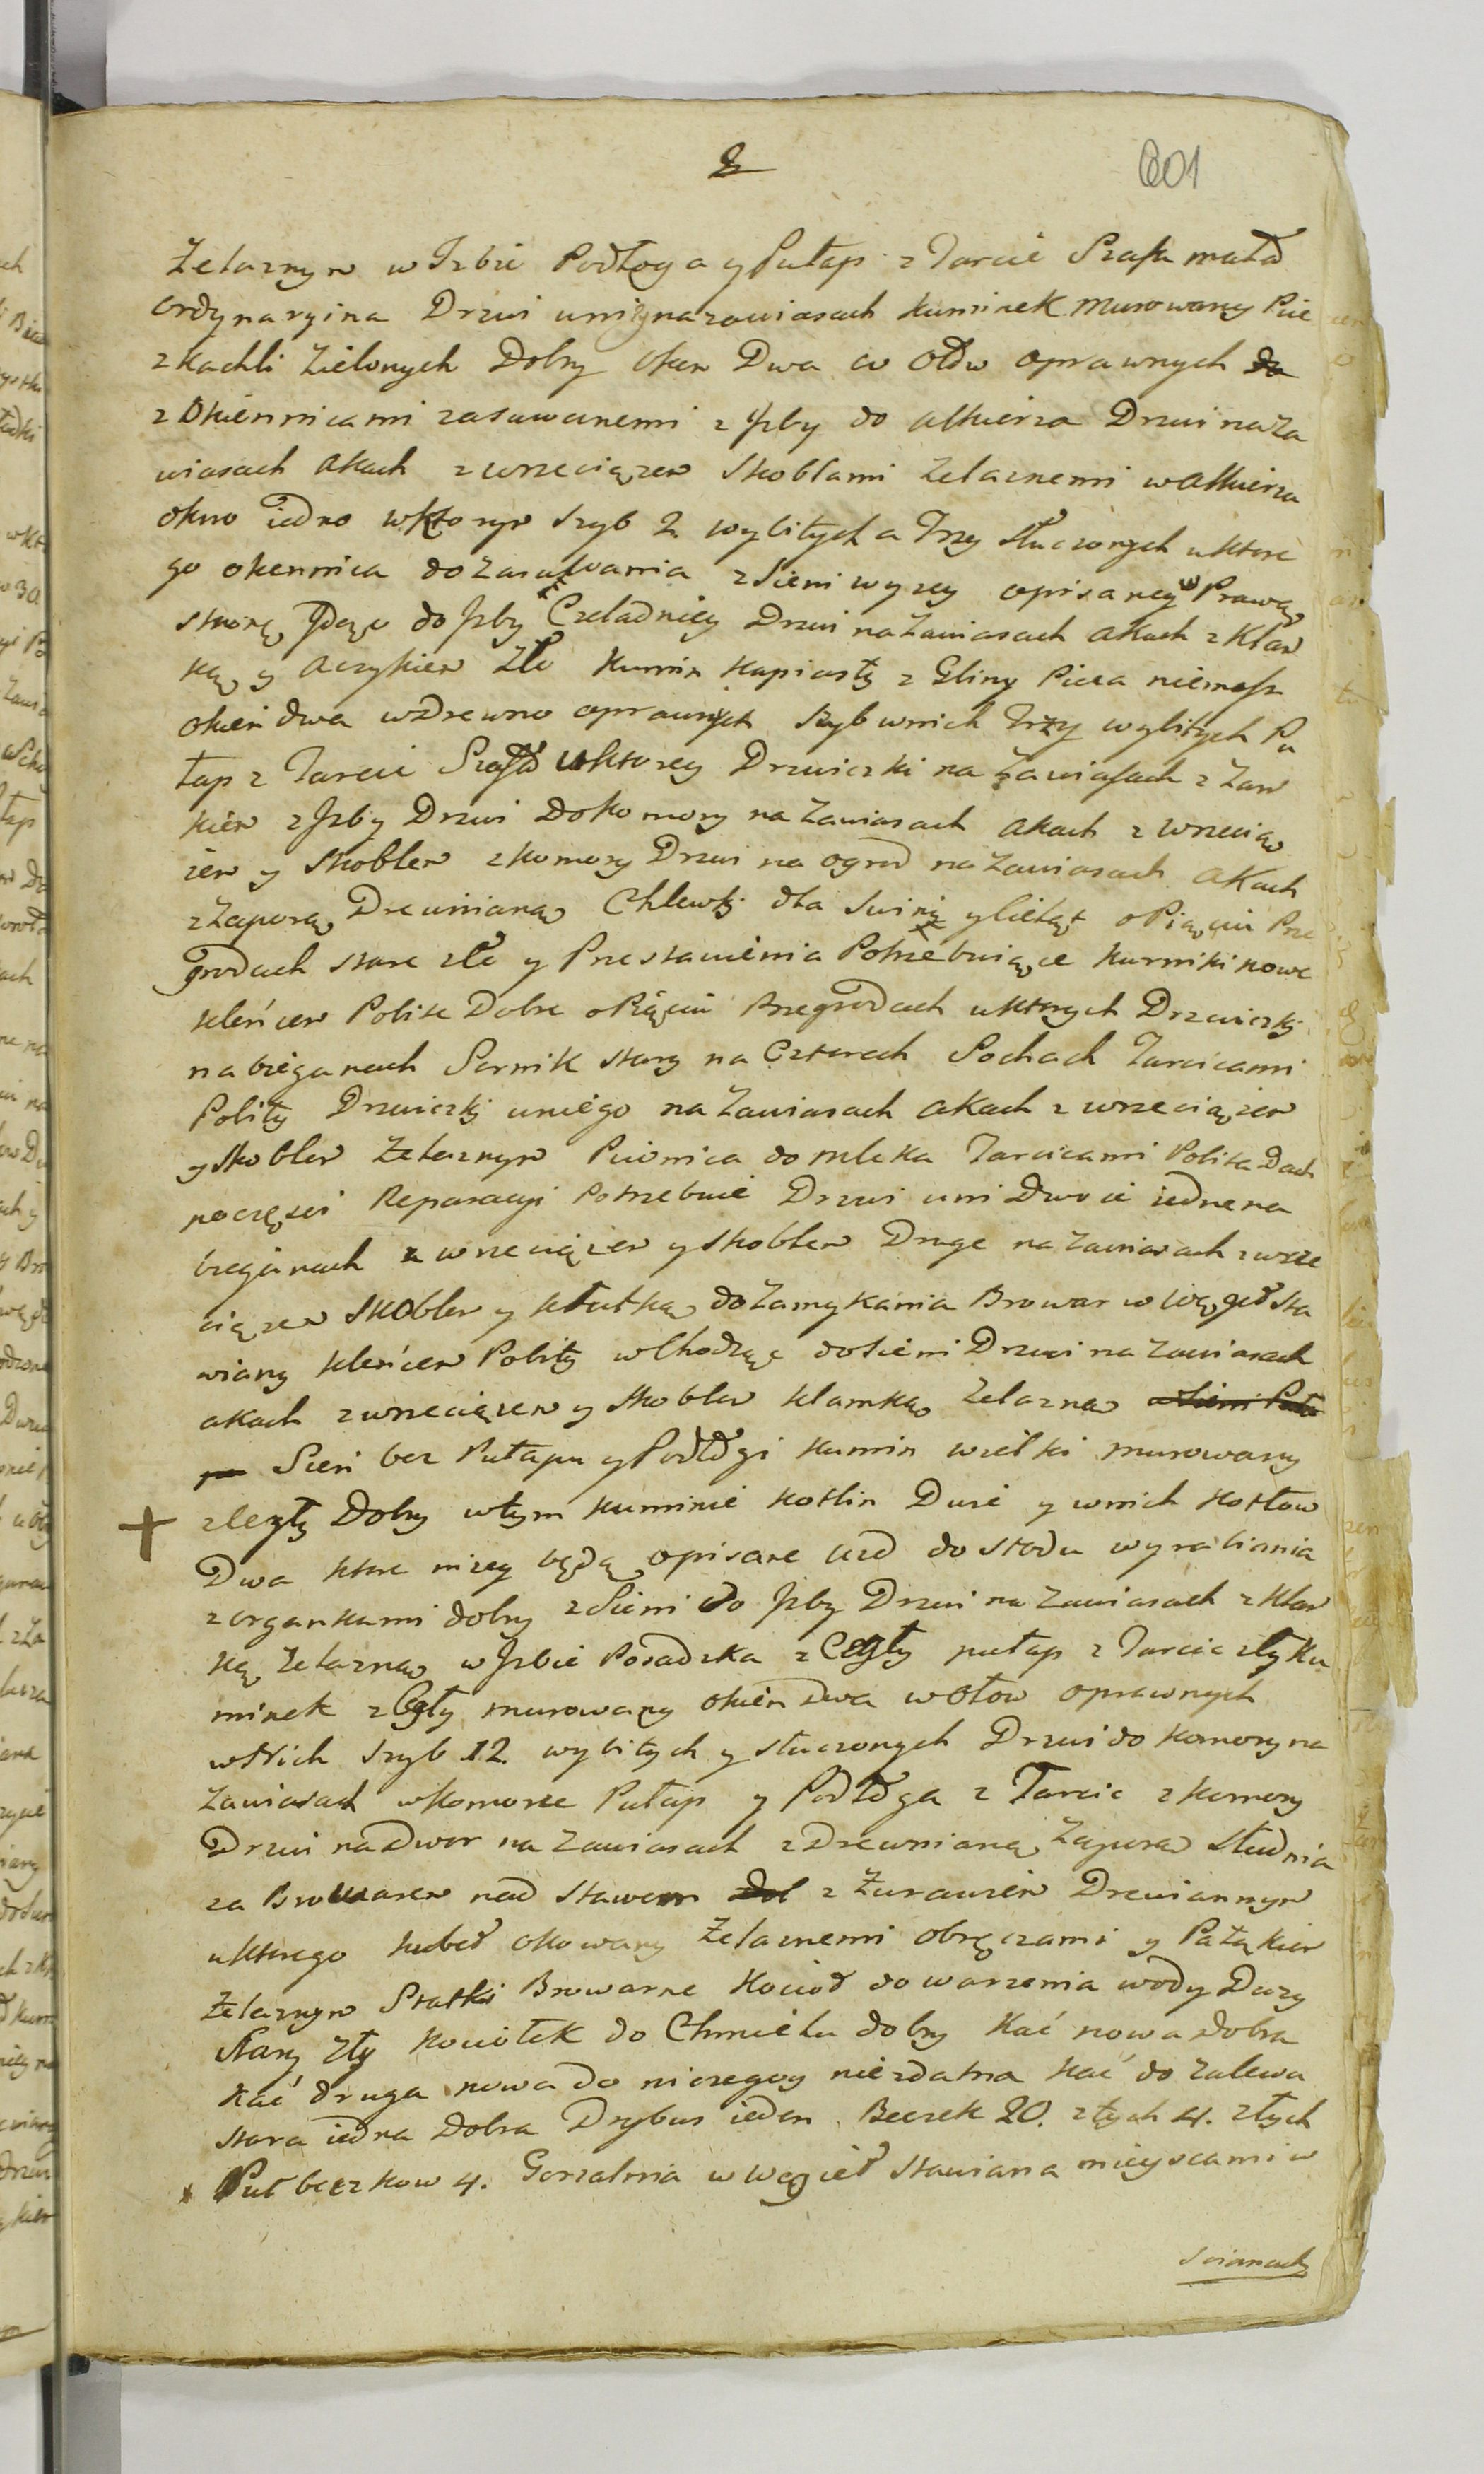 2
601
Zelaznym w Izbie Podłoga y Pułap z Tarcic Szafa mała
ordynaryina Drzwi uniy na zawiasach kuminek murowany Piec
z kachli Zielonych Dobry okien Dwa w ołów oprawnych
z okiennicami zasuwanemi z Jzby do alkierza Drzwi na Za
wiasach akach z wrzeciązem Skoblami Zelaznemi w Alkierzu
okno iedno w ktorym szyb 2 wybitych a Trzy stłuczonych u ktore
go okennica do Zasuwania z Sieni wyzey opisaney w Prawą
stronę Jdąc do Jzby Czeladniey Drzwi na Zawiasach akach z Klam
ką y Aczykiem Złe kumin kapiasty z Gliny Pieca niemasz
okien dwa w Drewno oprawnych Szyb w nich Trzy wybitych Pu
łap z Tarcic Szafa u ktorey Drzwiczki na Zawiasach z Zam
kiem z Jzby Drzwi do komory na Zawiasach akach z wrzecią
zem y Skoblem z komory Drzwi na ogrod na Zawiasach akach
z Zaporą Drewnianą Chlewky dla Swini y Cieląt o Piąciu Prze
grodach stare złe y Przestawienia Potrzebuiące kurniki nowe
kleńcem Pobite Dobre o Piąciu Przegrodach u ktorych Drzwiczky
na bieganach Sernik stary na Czterech Sochach Tarcicami
Pobity Drzwiczky u niego na Zawiasach akach z wrzeciązem
y Skoblem Zelaznym Piwnica do mleka Tarcicami Pobita Dach
po części Reparacyi Potrzebuie Drzwi u ni Dwoie iedne na
bieganach z wrzeciązem y Skoblem Drugie na Zawiasach z wrze
ciązem Skoblem y kłutką do Zamykania Browar w węgieł sta
wiany kleńcem Pobity wchodząc do Sieni Drzwi na Zawiasach
akach z wrzeciązem y Skoblem klamką Zelazną
Sien bez Pułapu y Podłogi kumin wielki murowany
z Cegły Dobry w tym kuminie kotlin Dwie y w nich kotłow
Dwa ktore nizey będą opisane Ozd do słodu wyrabiania
z organkami dobry z Sieni do Jzby Drzwi na Zawiasach z klam
ką Zelazną w Jzbie Posadzka z Cegły pułap z Tarcic zły ku
minek z Cegły murowany okien dwa w ołow oprawnych
w Nich Szyb 12 wybitych y stłuczonych Drzwi do komory na
Zawiasach w komorze Pułap y Podłoga z Tarcic z komory
Drzwi na Dwor na Zawiasach z Drewnianą Zaporą Studnia
za Browarem nad stawem z Zurawiem Drewiannym
u ktorego kubeł okowany Zelaznemi obręczami y Pałąkiem
Zelaznym Statki Browarne kocioł do warzenia wody Duzy
Stary Zły kociołek do Chmielu dobry kać nowa dobra
kać druga nowa do niczegoy niezdatna kać do zalewu
stara iedna dobra Drybus ieden Beczek 20. złych 4. złych
Puł beczkow 4. Gorzalnia w węgieł stawiana mieyscami w
Scianach